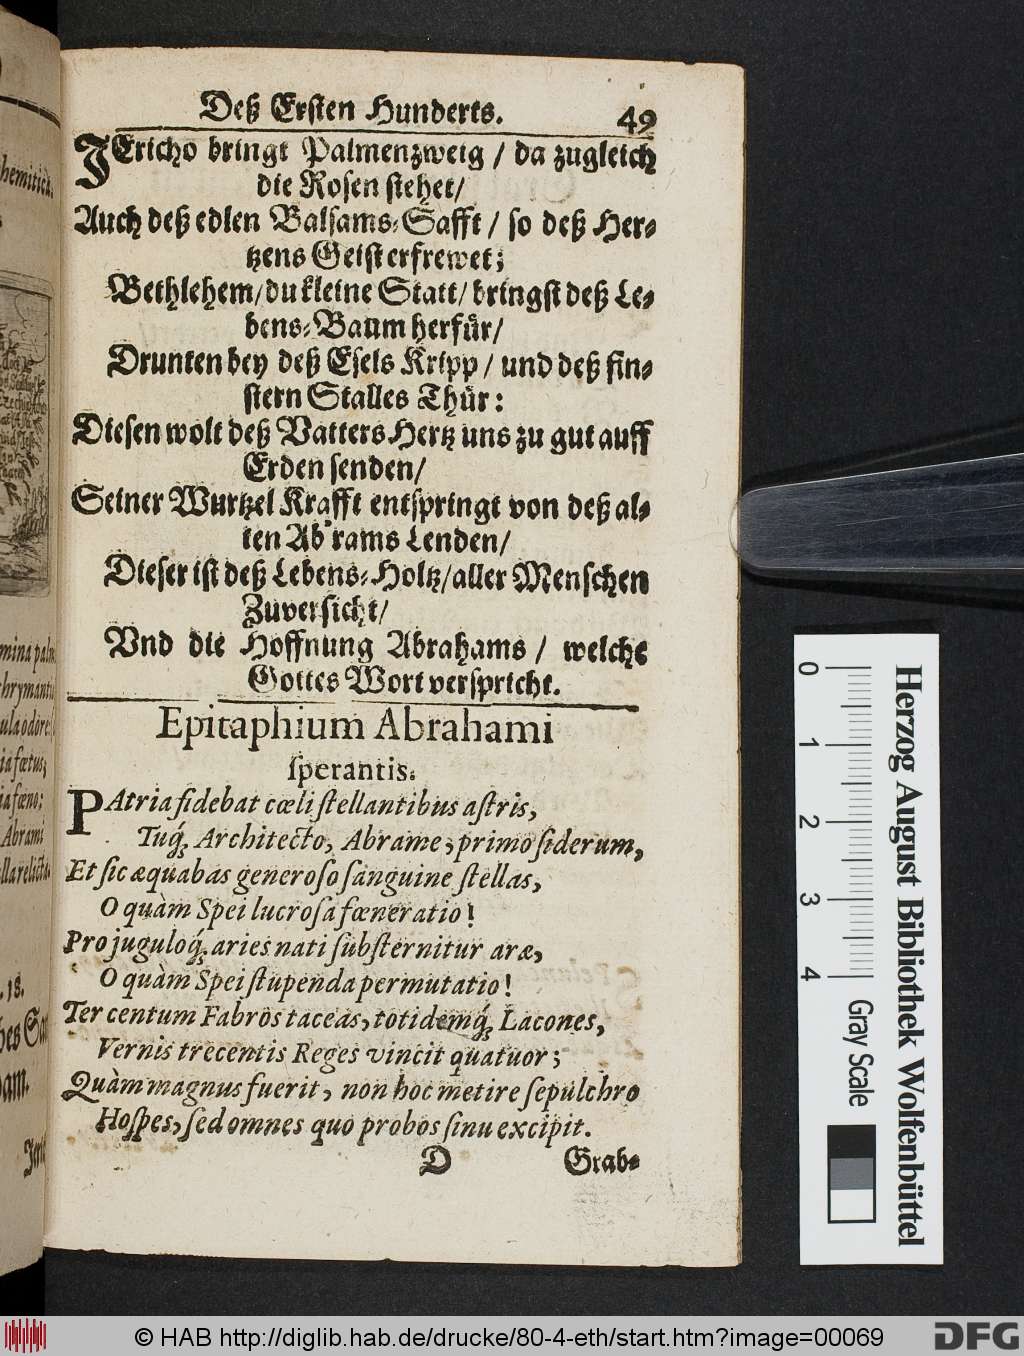 Deß Ersten Hunderts. 49
JEricho bringt Palmenzweig / da zugleich
die Rosen stehet/
Auch deß edlen Balsams-Safft / so deß Her-
tzens Geist erfrewet;
Bethlehem/ du kleine Statt/ bringst deß Le-
bens-Baum herfür/
Drunten bey deß Esels Kripp / und deß fin-
stern Stalles Thür:
Diesen wolt deß Vatters Hertz uns zu gut auff
Erden senden/
Seiner Wurtzel Krafft entspringt von deß al-
ten Ab'rams Lenden/
Dieser ist deß Lebens-Holtz/ aller Menschen
Zuversicht/
Vnd die Hoffnung Abrahams / welche
Gottes Wort verspricht.
Epitaphium Abrahami
ſperantis.
PAtria fidebat cœli ſtellantibus aſtris,
Tuq́, Architecto, Abrame; primo ſiderum,
Et ſic æquabas generoſo ſanguine ſtellas,
O quàm Spei lucroſa fœneratio!
Pro juguloq́, aries nati ſubſternitur aræ,
O quàm Spei ſtupenda permutatio!
Ter centum Fabros taceas, totidemq́, Lacones,
Vernis trecentis Reges vincit quatuor;
Quàm magnus fuerit, non hoc metire ſepulchro
Hoſpes, ſed omnes quo probos ſinu excipit.
D Grab-
0 1 2 3 4
Gray Scale
Herzog August Bibliothek Wolfenbüttel
© HAB http://diglib.hab.de/drucke/80-4-eth/start.htm?image=00069
DFG